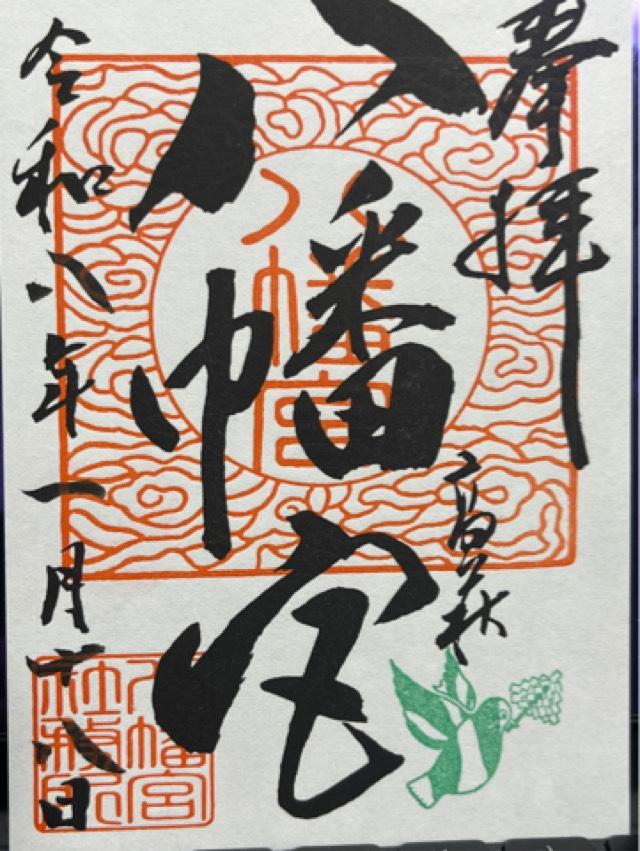 奉拝
高萩
八幡宮
八幡宮
令和八年一月十八日
八幡宮
社務所印